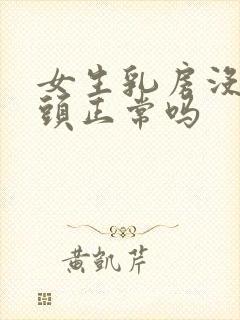 女生乳房没
頭正常吗
黄凯芹